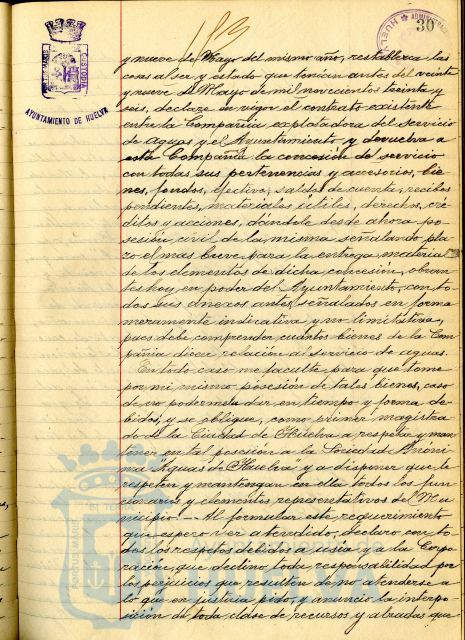 153
30
ADMINISTRA
HUELV
PORTUS MARIS
CUSTODIA
AYUNTAMIENTO DE HUELVA
y nueve de Mayo del mismo año, restableva las
cosas al ser y estado que tenian antes del veinte
y nueve de Mayo de mil novecientos treinta y
seis, declare en vigor el contrato existente
entre la Compañia explotadora del servicio
de aguas y el Ayuntamiento y devuelva a
esta Compañia la concesión del servicio
con todas sus pertenencias y accesorios, bie-
nes, fondos, efectivo, saldos de cuenta, recibos
pendientes, materiales, útiles, derechos, cré-
ditos y acciones, dándole desde ahora po-
sesión civil de la misma señalando pla-
zo el mas breve para la entrega material
de los elementos de dicha concesión, obran-
tes hoy, en poder del Ayuntamiento, con to-
dos sus anexos antes señalados en forma
meramente indicativa y no limitativa,
pues debe comprender cuantos bienes de la Com-
pañia dicen relación al servicio de aguas.
En todo caso me faculte para que tome
por mi mismo posesión de tales bienes, caso
de no podermela dar en tiempo y forma de-
bidos, y se obligue, como primer magistra-
do de la Ciudad de Huelva a respetar y man-
tener en tal posesión a la Sociedad Anóni-
ma "Aguas de Huelva" y a disponer que le
respeten y mantengan en ella todos los fun-
cionarios y elementos representativos del Mu-
nicipio. — Al formular este requerimiento
que espero ver atendido, declaro con to-
dos los respetos debidos a usia y a la Corpo-
ración, que declino toda responsabilidad por
los perjuicios que resulten de no atenderse a
lo que en justicia pido, y anuncio la interpo-
sición de toda clase de recursos y alzadas que